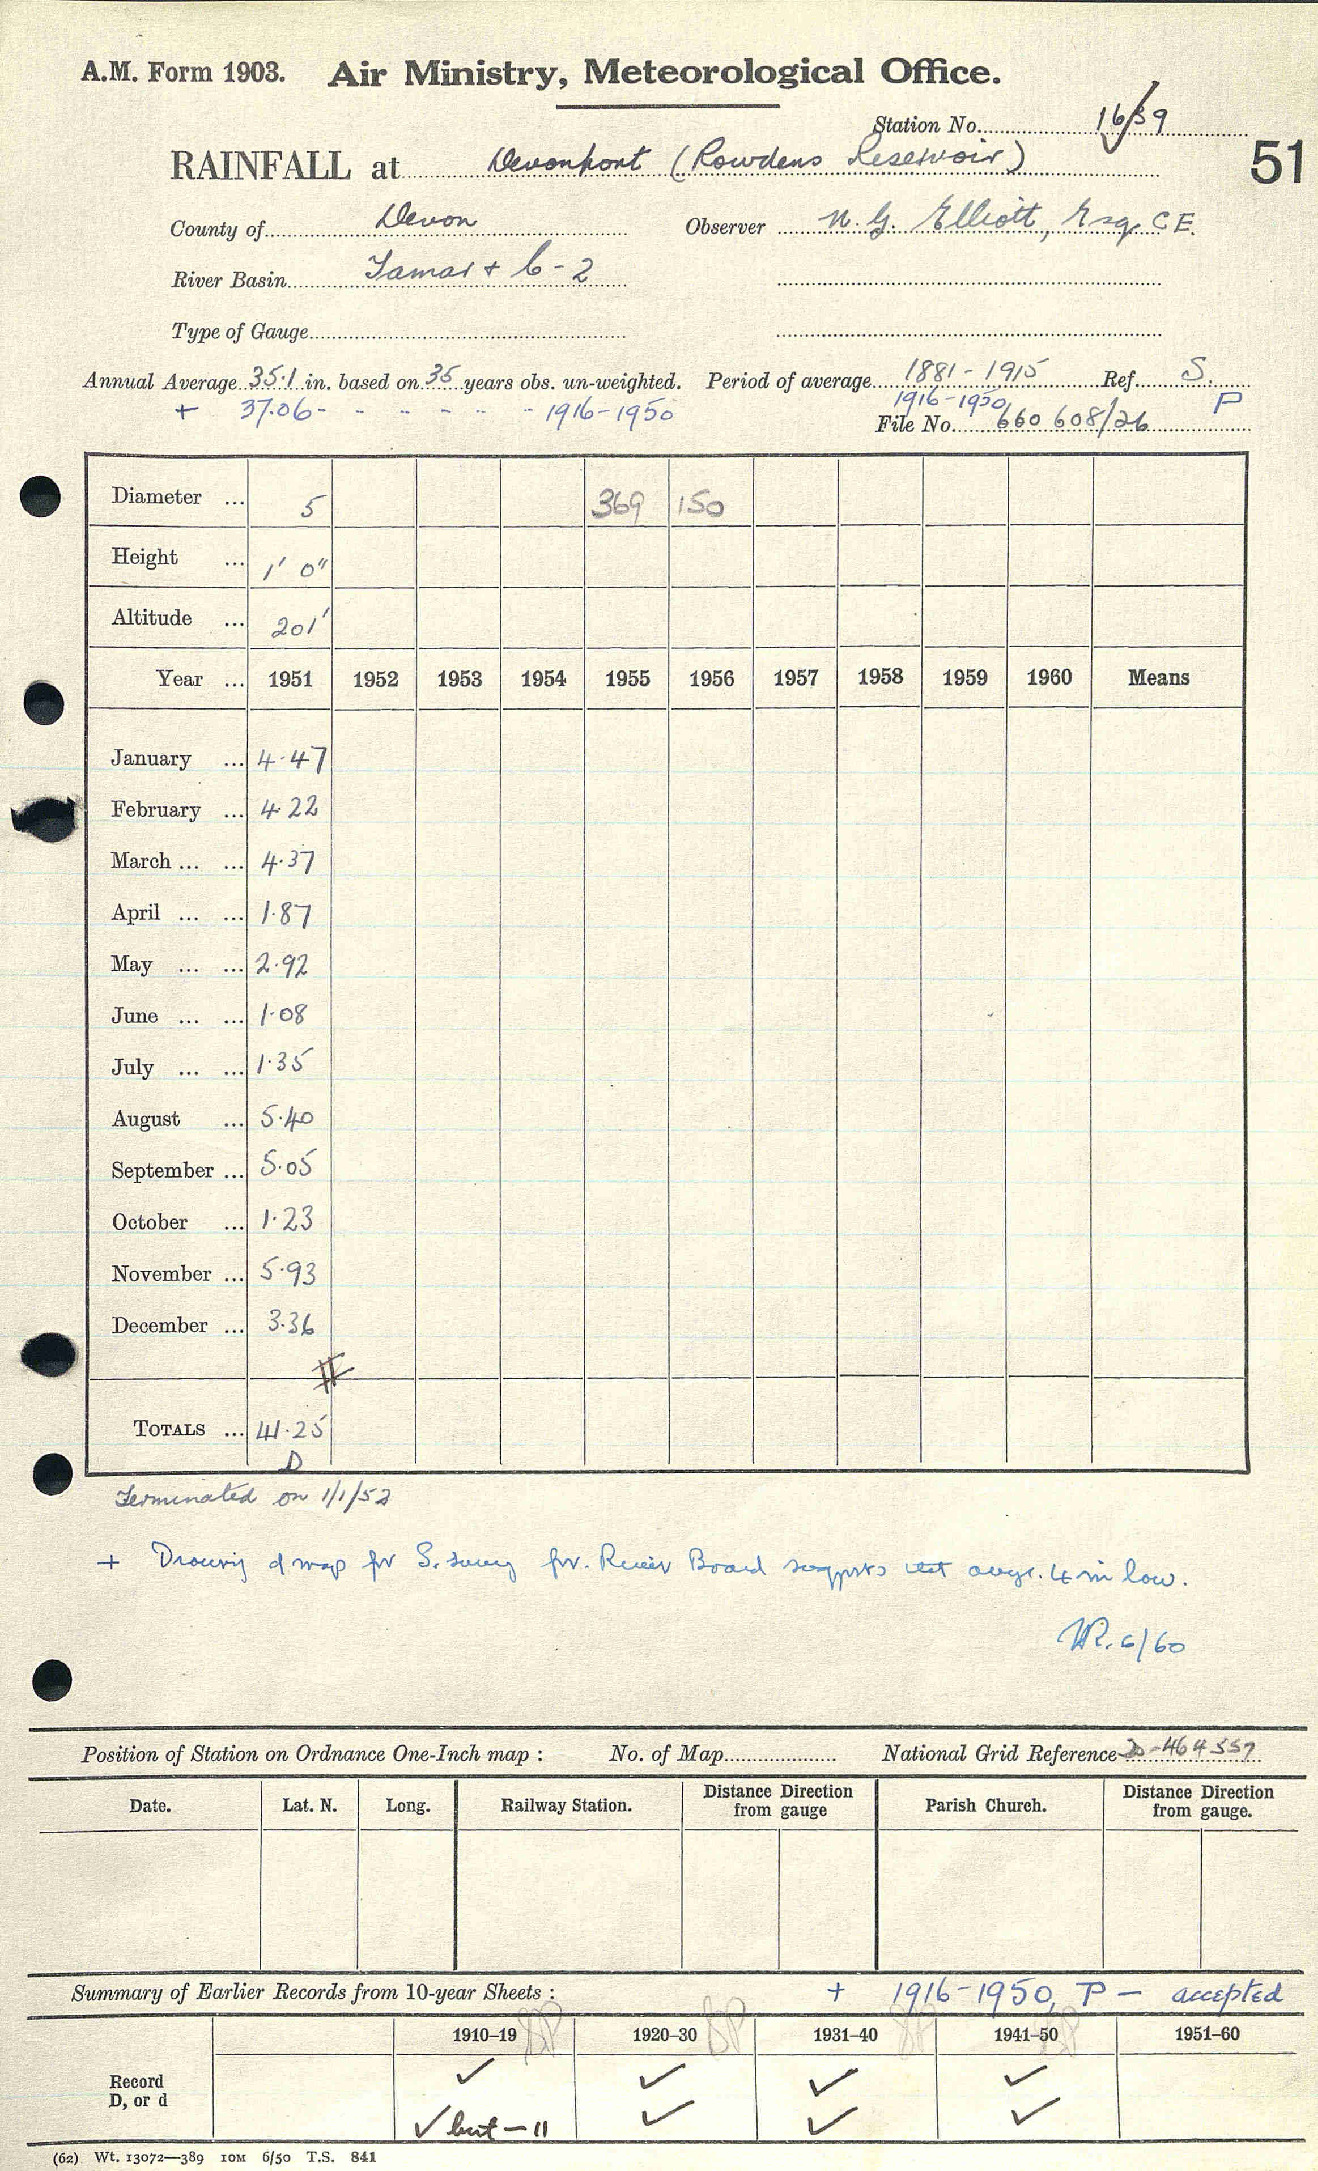 A.M. Form 1903. Air Ministry, Meteorological Office.
Station No. 1639
RAINFALL at Devonport (Rowdens Reservoir) 51
County of Devon Observer N. G. Elliott, Esq. C E.
River Basin Tamar + 6-2
Type of Gauge
Annual Average 35.1 in. based on 35 years obs. un-weighted. Period of average 1881-1915 Ref. S.
+ 37.06 - - - - - - 1916-1950 1916-1950 P
File No. 660 608/26
Diameter ... 5 369 150
Height ... 1' 0"
Altitude ... 201'
Year ... 1951 1952 1953 1954 1955 1956 1957 1958 1959 1960 Means
January ... 4.47
February ... 4.22
March ... ... 4.37
April ... ... 1.87
May ... ... 2.92
June ... ... 1.08
July ... ... 1.35
August ... 5.40
September ... 5.05
October ... 1.23
November ... 5.93
December ... 3.36
TOTALS ... 41.25
D
Terminated on 1/1/52
+ Drawing of map for S. Survey for River Board suggests that avge. 4 in low.
6/60
Position of Station on Ordnance One-Inch map : No. of Map National Grid Reference 464557
Date. Lat. N. Long. Railway Station. Distance Direction from gauge Parish Church. Distance Direction from gauge.
Summary of Earlier Records from 10-year Sheets : + 1916-1950, P - accepted
1910-19 1920-30 1931-40 1941-50 1951-60
Record ✓ ✓ ✓ ✓
D, or d ✓ but - 11 ✓ ✓ ✓
(62) Wt. 13072—389 10M 6/50 T.S. 841